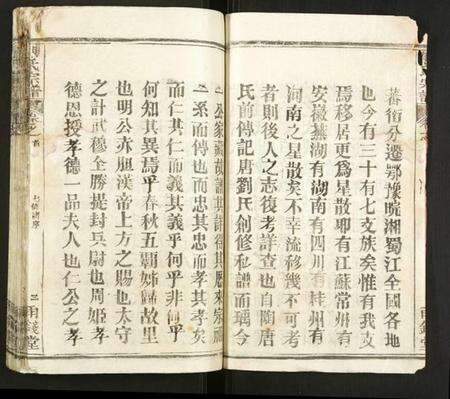 蕃衍分遷鄂豫皖湘蜀江全國各地
也今有三十有七支族矣惟有我支
焉移居更為星散耶有江蘇常州有
安徽蕪湖有湖南有四川有桂州有
河南之星散矣不幸流移幾不可考
者則後人之志復考詳查也自陶唐
氏前傳記唐劉氏創修私譜而瑀今
公家藏故譜其詳得其歷來宗派
一系而傳也而忠其忠而孝其孝矣
而仁其仁而義其義乎何乎非何乎
何知其異焉乎春秋五霸姊歸故里
也明公亦胆漢帝上方之賜也太守
之計武穆全勝提封兵尉也周姬孝
德恩授孝德一品夫人也仁公之孝
氏宗譜
卷之首
二